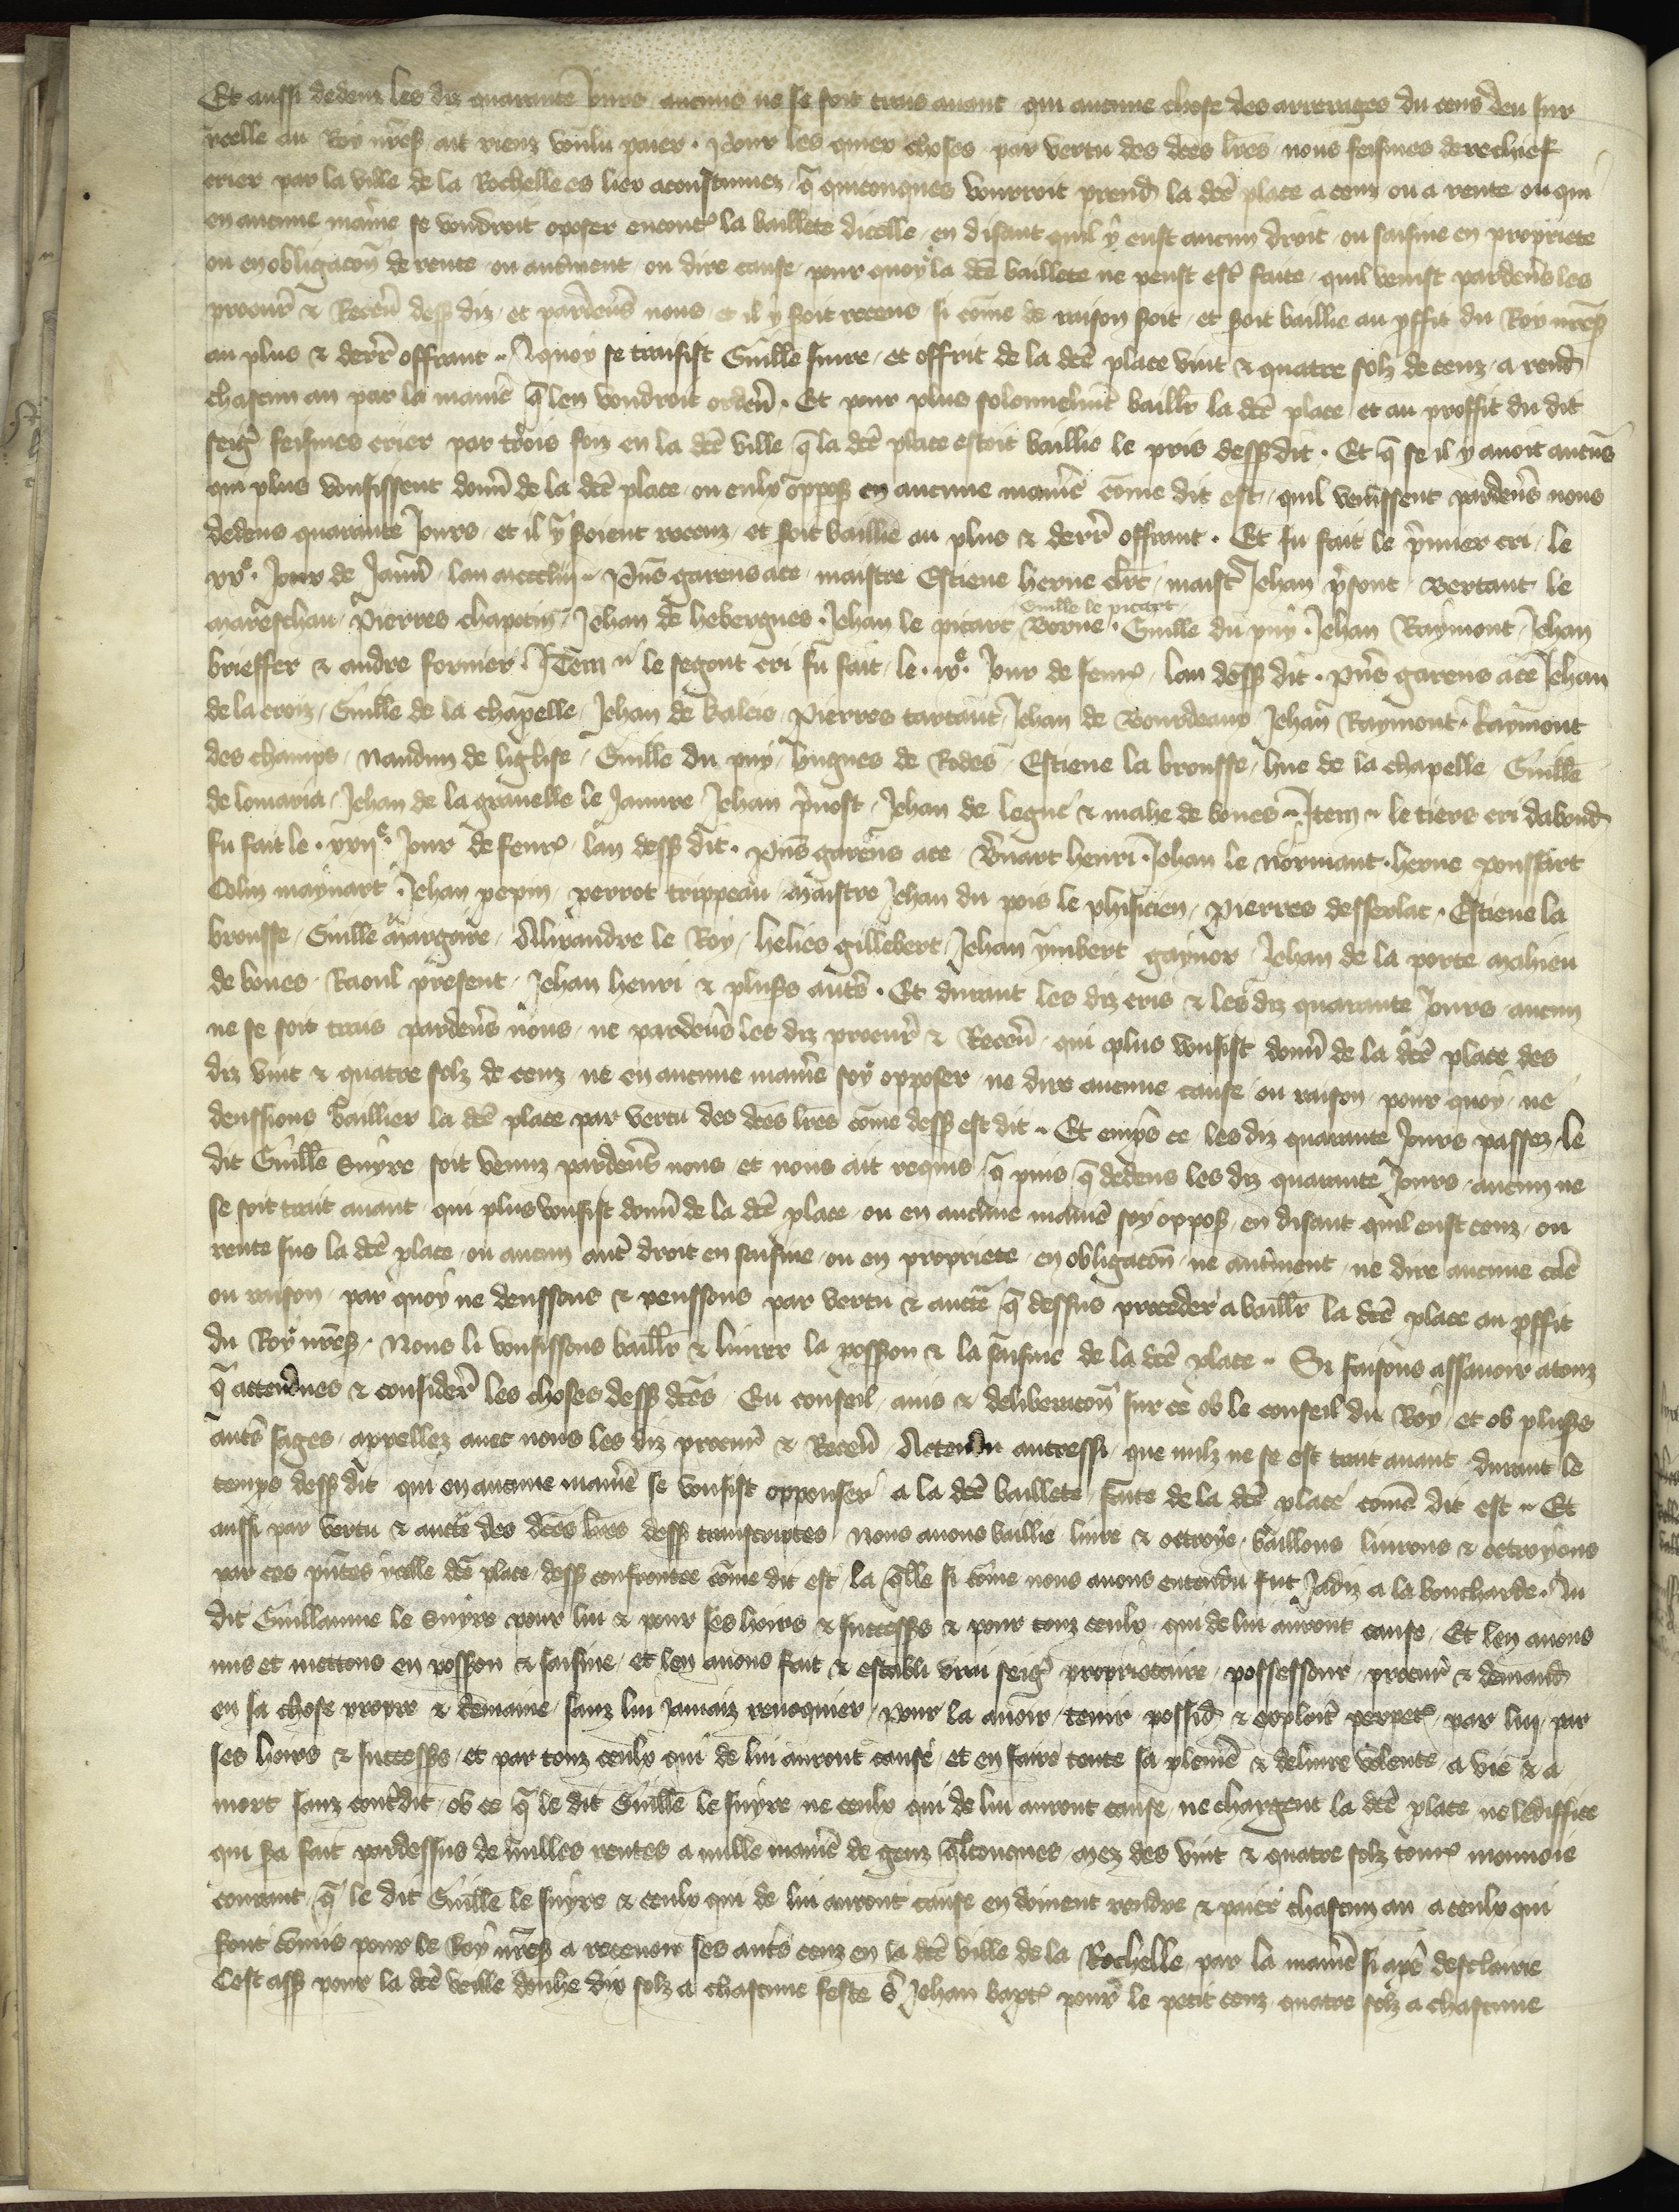 Et aussi dedenz les diz quarante Jours aucuns ne se soit trais auant qui aucune chose des arrerages du cens deu sur
ycelle au Roy nr̃es̃ ait rienz voulu paier. Pour les quiex choses par vertu des dc̃es lr̃es nous feismes derechief
crier par la ville de la Rochelle es liex acoustumez q̃ quiconques vouroit prend̃ la dc̃e place a cenz ou a rente ou qui
en aucune maniẽ se voudroit oposer encont̃ la baillete dicelle en disant quil y eust aucun droit ou saisine en propriete
ou en obligacoñ de rente ou autm̃ent ou dire cause pour quoy la dc̃e baillete ne peust est̃ faite quil venist pardeuñs les
procur̃ & Receũ dess̃ diz et pardeuñs nous et il y soit receus si com̃e de raison soit et soit baillie au p̃ffit du Roy nr̃es̃
au plus & derr̃ offrant. A quoy se transist Guill̃e suire et offrit de la dc̃e place vint & quatre solz de cenz a rend̃
chascun an par la maniẽ q̃ len voudroit ordeñ. Et pour plus solonnelm̃t baill̃r la dc̃e place et au proffit du dit
seig̃r feismes crier par trois foiz en la dc̃e ville q̃ la dc̃e place estoit baillie le pris dess̃ dit. Et q̃ se il y auoit aucũs
qui plus vousissent doñ de la dc̃e place ou eulx oppos̃ en aucune maniẽ com̃e dit est quil venissent pardeuñs nous
dedens quarante Jours et il y soient receuz et soit baillie au plus & derr̃ offrant. Et fu fait le p̃mier cri le
xxe. Jour de Janũ lan mccclij. Pñs garens ace maistre Estiene herue clr̃c maist̃ Jehan p̃sont Bertaut le
mareschau Pierres chapotin Jehan de hebergues. Jehan le picart Guill̃e le picart Borne. Guill̃e du puy. Jehan Raymont Jehan
brieffer & andre fornier. Item le segont cri fu fait le .ixe. Jour de feur̃ lan dess̃ dit. Pñs garens ace Jehan
de la croiz Guill̃e de la chapelle Jehan de kaleis Pierres tartaut Jehan de Bourdeaux Jehan Raymont. Raymont
des champs Naudun de liglise Guill̃e du puy hugues de Rodes Estiene la brousse hue de la chapelle Guill̃e
de lomaria Jehan de la grauelle le Jaunre Jehan p̃uost Jehan de legue & mahe de boues Item le tiers cri dabond̃
fu fait le .xxije. Jour de feur̃ lan dess̃ dit. Pñs garens ace Beñart henri. Jehan le normant. herue poussart
Colin maynart. Jehan pepin perrot trippeau maistre Jehan du pois le phisicien Pierres desserlac. Estiene la
brousse Guill̃e margoire Alixandre le Roy helies gillebert Jehan ymbert gaynor Jehan de la porte mahieu
de boues Raoul present Jehan henri & plus̃s autr̃s. Et durant les diz cris & les diz quarante Jours aucun
ne se soit trais pardeuñs nous ne pardeuñs les diz procur̃ & Receũ qui plus vousist doñ de la dc̃e place des
diz vint & quatre solz de cenz ne en aucune maniẽ soy opposer ne dire aucune cause ou raison pour quoy ne
deussions baillier la dc̃e place par vertu des dc̃es lr̃es com̃e dess̃ est dit. Et emp̃s ce les diz quarante Jours passez le
dit Guill̃e suyre soit venuz pardeuñs nous et nous ait requis q̃ puis q̃ dedens les diz quarante Jours aucun ne
se soit trait auant qui plus vousist doñ de la dc̃e place ou en aucune maniẽ soy oppos̃ en disant quil eust cenz ou
rente sus la dc̃e place ou aucun autr̃ droit en saisine ou en propriete en obligacoñ ne autm̃ent ne dire aucune cãe
ou raison par quoy ne deussons & peussons par vertu & aucte q̃ dessus proceder a baill̃r la dc̃e place au p̃ffit
du Roy nr̃es̃. Nous li vousissons baill̃r & liurer la poss̃on & la saisine de la dc̃e place. Si faisons assauoir atouz
q̃ attendues & consider̃ les choses dess̃ dc̃es Eu conseil auis & deliberacoñ sur ce ob le conseil du Roy et ob plus̃s
autr̃s sages appellez auec nous les diz procur̃ & Receũ Attendu autressi que nulz ne se est trait auant durant le
temps dess̃ dit qui en aucune maniẽ se vousist opponser a la dc̃e baillete faite de la dc̃e place com̃e dit est. Et
aussi par vertu & aucte des dc̃es lr̃es dess̃ transcriptes Nous auons baillie liure & octroye baillons liurons & octroyons
par ces pñtes ycelle dc̃e place dess̃ confrontee com̃e dit est la q̃lle si com̃e nous auons entendu fut Jadiz a la boucharde. Au
dit Guillaume le suyre pour lui & pour ses hoirs & success̃s & pour touz ceulx qui de lui auront cause Et len auons
mis et mettons en poss̃on & saisine et len auons fait & establi vrai seig̃r proprietaire possesseur procur̃ & demand̃
en sa chose propre & demaine sanz lui Jamaiz reuoquier pour la auoir tenir possid̃ & exploit̃ perpet̃ par lui par
ses hoirs & success̃s et par touz ceulx qui de lui auront cause et en faire toute sa pleniẽ & deliure volente a vie & a
mort sanz contr̃dit ob ce q̃ le dit Guill̃e le suyre ne ceulx qui de lui auront cause ne chargent la dc̃e place ne lediffice
qui sa fait pardessus de nulles rentes a nulle maniẽ de genz q̃lconques mez des vint & quatre solz tourñ monnoie
courant q̃ le dit Guill̃e le suyre & ceulx qui de lui auront cause en doiuent rendre & paier chascun an a ceulx qui
sont com̃is pour le Roy nr̃es̃ a receuoir ses autr̃s cenz en la dc̃e ville de la Rochelle par la maniẽ si apr̃e desclairie
Cest ass̃ pour la dc̃e veille douhe dix solz a chascune feste S̃ Jehan bapt̃ pour le petit cenz quatre solz a chascune